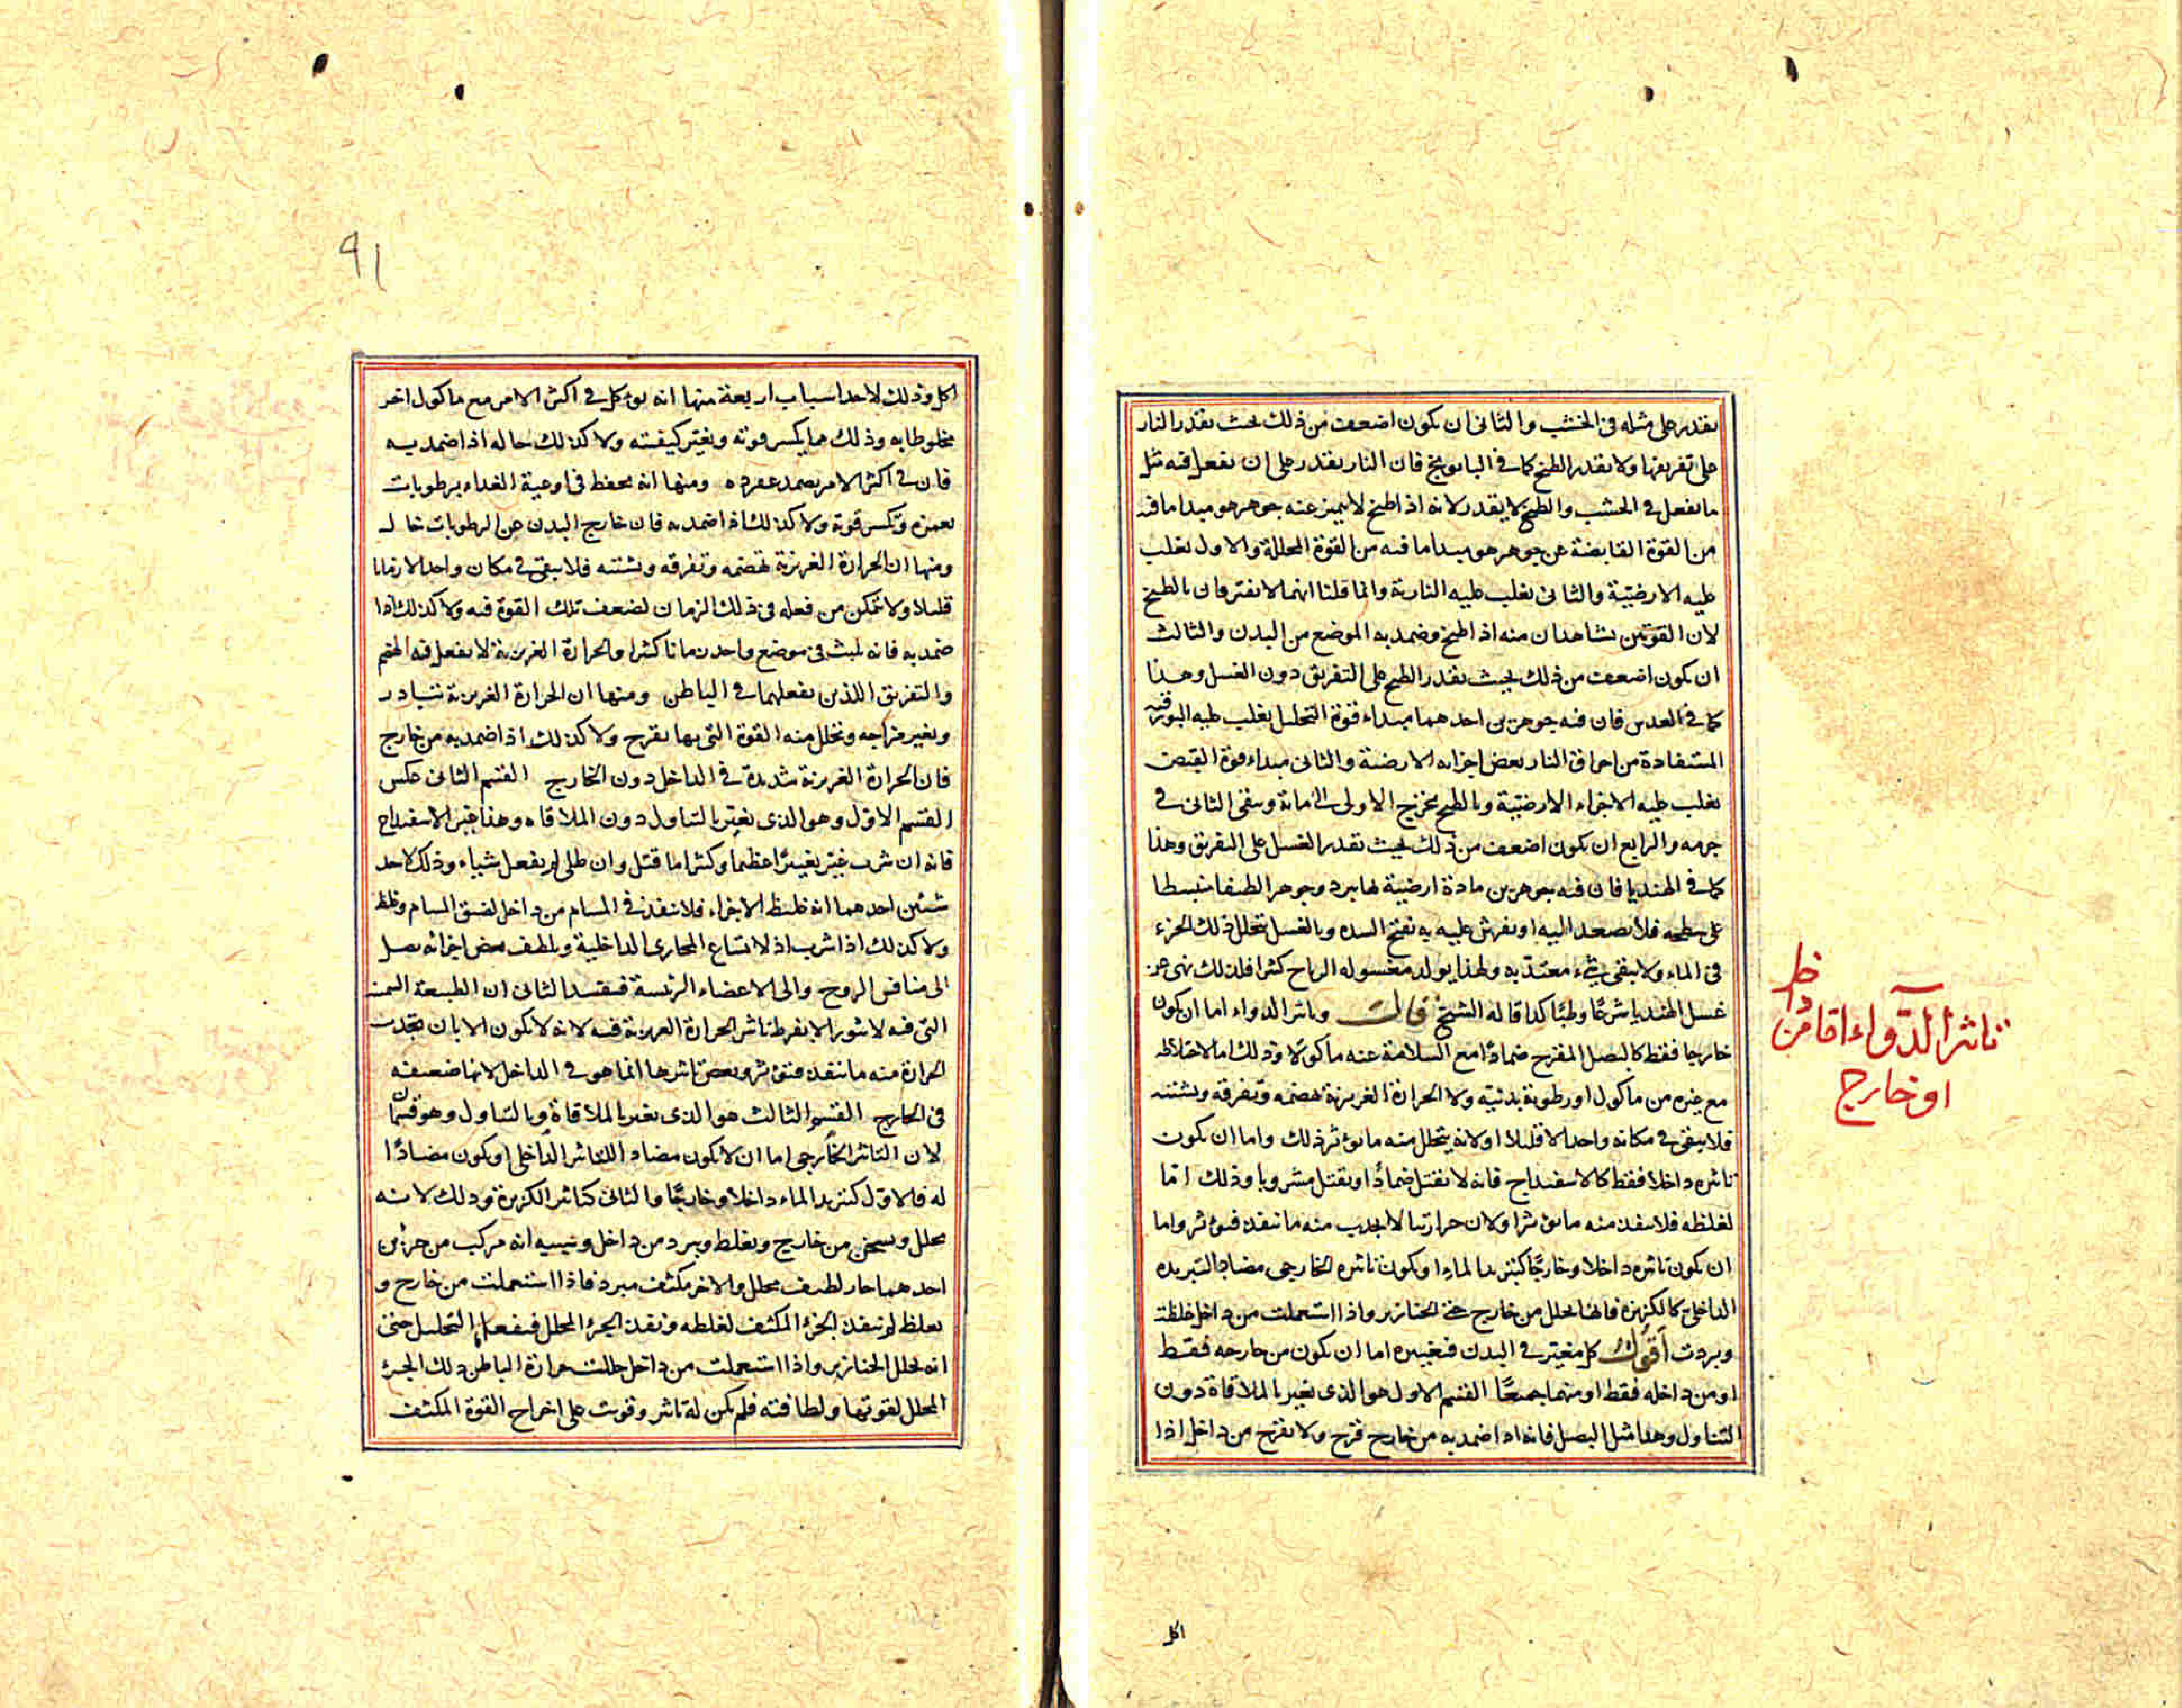 يقدر على مثله في الخشب والثاني ان يكون اضعف من ذلك بحيث يقدر النار
على تفريقها ولا يقدر الطبخ كما في البابونج فان النار يقدر على ان يفعل فيه مثل
ما يفعل في الخشب والطبخ لا يقدر لانه اذا طبخ لا يميز عنه جوهر هو مبدا ما فيه
من القوة القابضة عن جوهر هو مبدا ما فيه من القوة المحللة والاول يغلب
عليه الارضيّة والثاني يغلب عليه النارية وانما قلنا انهما لا يفترقان بالطبخ
لان القوتين نشاهدان منه اذا طبخ وضمد به الموضع من البدن والثالث
ان يكون اضعف من ذلك بحيث يقدر الطبخ على التفريق دون الغسل وهذا
كما في العدس فان فيه جوهرين احدهما مبداء قوة التحليل يغلب عليه البورقية
المستفادة من احراق النار بعض اجزاءه الارضية والثاني مبداء قوة القبض
يغلب عليه الاجزاء الارضيّة وبالطبخ يخرج الاولى الى مائه ويبقى الثاني في
جرمه والرابع ان يكون اضعف من ذلك بحيث يقدر الغسل على التفريق وهذا
كما في الهندبا فان فيه جوهرين مادة ارضيّة بها يبرد وجوهر الطيفا منبسطا
على سطحه فلا تصعد اليه او نفرش عليه به يفتح السدد وبالغسل يتحلل ذلك الجزء
في الماء ولا يبقى شيء معتدّ به ولهذا يولد مغسوله الرياح كثيرا فلذلك نهى عن
غسل الهندبا شرعًا وطبًا كذا قاله الشيخ قال وتاثير الدواء اما ان يكون
خارجا فقط كالبصل المقرح ضمادًا مع السلامة عنه ماكولا وذلك اما لاختلاطه
مع غيره من ماكول او رطوبة بدنية ولا الحرارة الغريزية تهضمه وتفرقه وتشتته
فلا يبقى في مكانه واحدا الا قليلا او لانه يتحلل منه ما يؤثر ذلك واما ان يكون
تاثيره داخلا فقط كالاسفيداج فانه لا يقتل ضمادًا ويقتل مشروبا وذلك امّا
لغلظه فلا ينفذ منه ما يؤثر او لان حرارتنا لا تجذب منه ما ينفذ فيؤثر واما
ان يكون تاثيره داخلا وخارجًا كتبريد الماء او يكون تاثيره الخارجي مضاد التبريده
الداخلي كالكزبرة فانها تحلل من خارج حتى الخنازير واذا استعملت من داخل غلظت
وبردت اقول كل مغيّر في البدن فتغييره اما ان يكون من خارجه فقط
او من داخله فقط او منهما جميعًا القسم الاول هو الذي تغير بالملاقاة دون
التناول وهذا مثل البصل فانه اذا ضمد به من خارج قرح ولا يقرح من داخل اذا
تاثير الدّواء امّا من داخل
او خارج
اكل
٩١
اكل وذلك لاحد اسباب اربعة منها انه يؤكل في اكثر الامر مع ماكول اخر
مخلوطا به وذلك مما يكسر قوته ويغيّر كيفيته ولا كذلك حاله اذا ضمد به
فان في اكثر الامر يضمد بمفرده ومنها انه يحفظ في اوعية الغذاء برطوبات
تغمره وتكسر قوته ولا كذلك اذا ضمد به فان خارج البدن عن الرطوبات خال
ومنها ان الحرارة الغريزية تهضمه وتفرقه وتشتته فلا يبقى في مكان واحد الا زمانا
قليلا ولا تتمكن من فعله في ذلك الزمان لضعف تلك القوة فيه ولا كذلك اذا
ضمد به فانه يلبث في موضع واحد زمانا كثيرا والحرارة الغريزية لا يفعل فيه الهضم
والتفريق اللذين يفعلهما في الباطن ومنها ان الحرارة الغريزية تتبادر
وتغير مزاجه وتحلل منه القوة التي بها يقرح ولا كذلك اذا ضمد به من خارج
فان الحرارة الغريزية شديدة في الداخل دون الخارج القسم الثاني عكس
القسم الاوّل وهو الذي يغير بالتناول دون الملاقاه وهذا مثل الاسفيداج
فانه ان شرب غيّر تغييرًا عظيما وكثيرا ما قتل وان طلى لم يفعل شيئا وذلك لاحد
شيئين احدهما انه غليظ الاجزاء فلا ينفذ في المسام من داخل لضيق المسام وغلظه
ولا كذلك اذا شرب اذ لاتساع المجارى الداخلية وبلطف بعض اجزائه يصل
الى منافس الروح والى الاعضاء الرئيسة فيفسد الثاني ان الطبيعة السمية
التي فيه لا تثور الا بفرط تاثير الحرارة الغريزية فيه لانه لا يكون الا بان تجذب
الحرارة منه ما ينفذ فيؤثر وبعض تاثيرها انما هو في الداخل لانها ضعيفه
في الخارج القسم الثالث هو الذي يغير بالملاقاة وبالتناول وهو قسمان
لان التاثير الخارجي اما ان لا يكون مضاد اللتاثير الداخلي او يكون مضادًا
له فالاول كتبريد الماء داخلا وخارجًا والثاني كتاثير الكزبرة وذلك لانه
يحلل ويسخن من خارج ويغلظ ويبرد من داخل وسببه انه مركب من جزئين
احدهما حار لطيف محلل والاخر مكثف مبرد فاذا استعملت من خارج و
يغلظ لم ينفذ الجزء المكثف لغلظه ونفذ الجزء المحلل فيفعل التحليل حتى
انه يحلل الخنازير واذا استعملت من داخل حللت حرارة الباطن ذلك الجزء
المحلل لقوتها ولطافته فلم يكن له تاثير وقويت على اخراج القوة المكثف